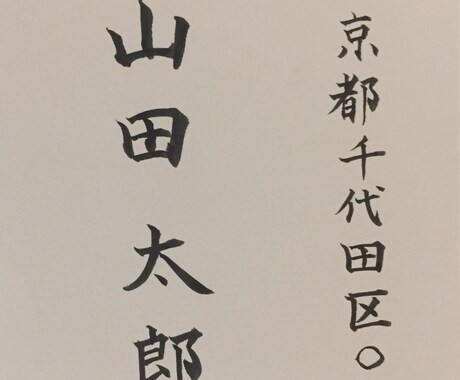 京都千代田区〇
山田太郎